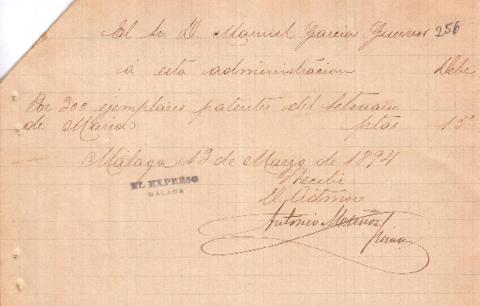 El Sr. D. Manuel Garcia Guerrero 256
á esta administracion Debe
Por 200 ejemplares patentes del Setenario
de Maria ptas 15
Málaga 12 de Marzo de 1894
Recibi
El Admor
EL EXPRESO
MALAGA
Antonio